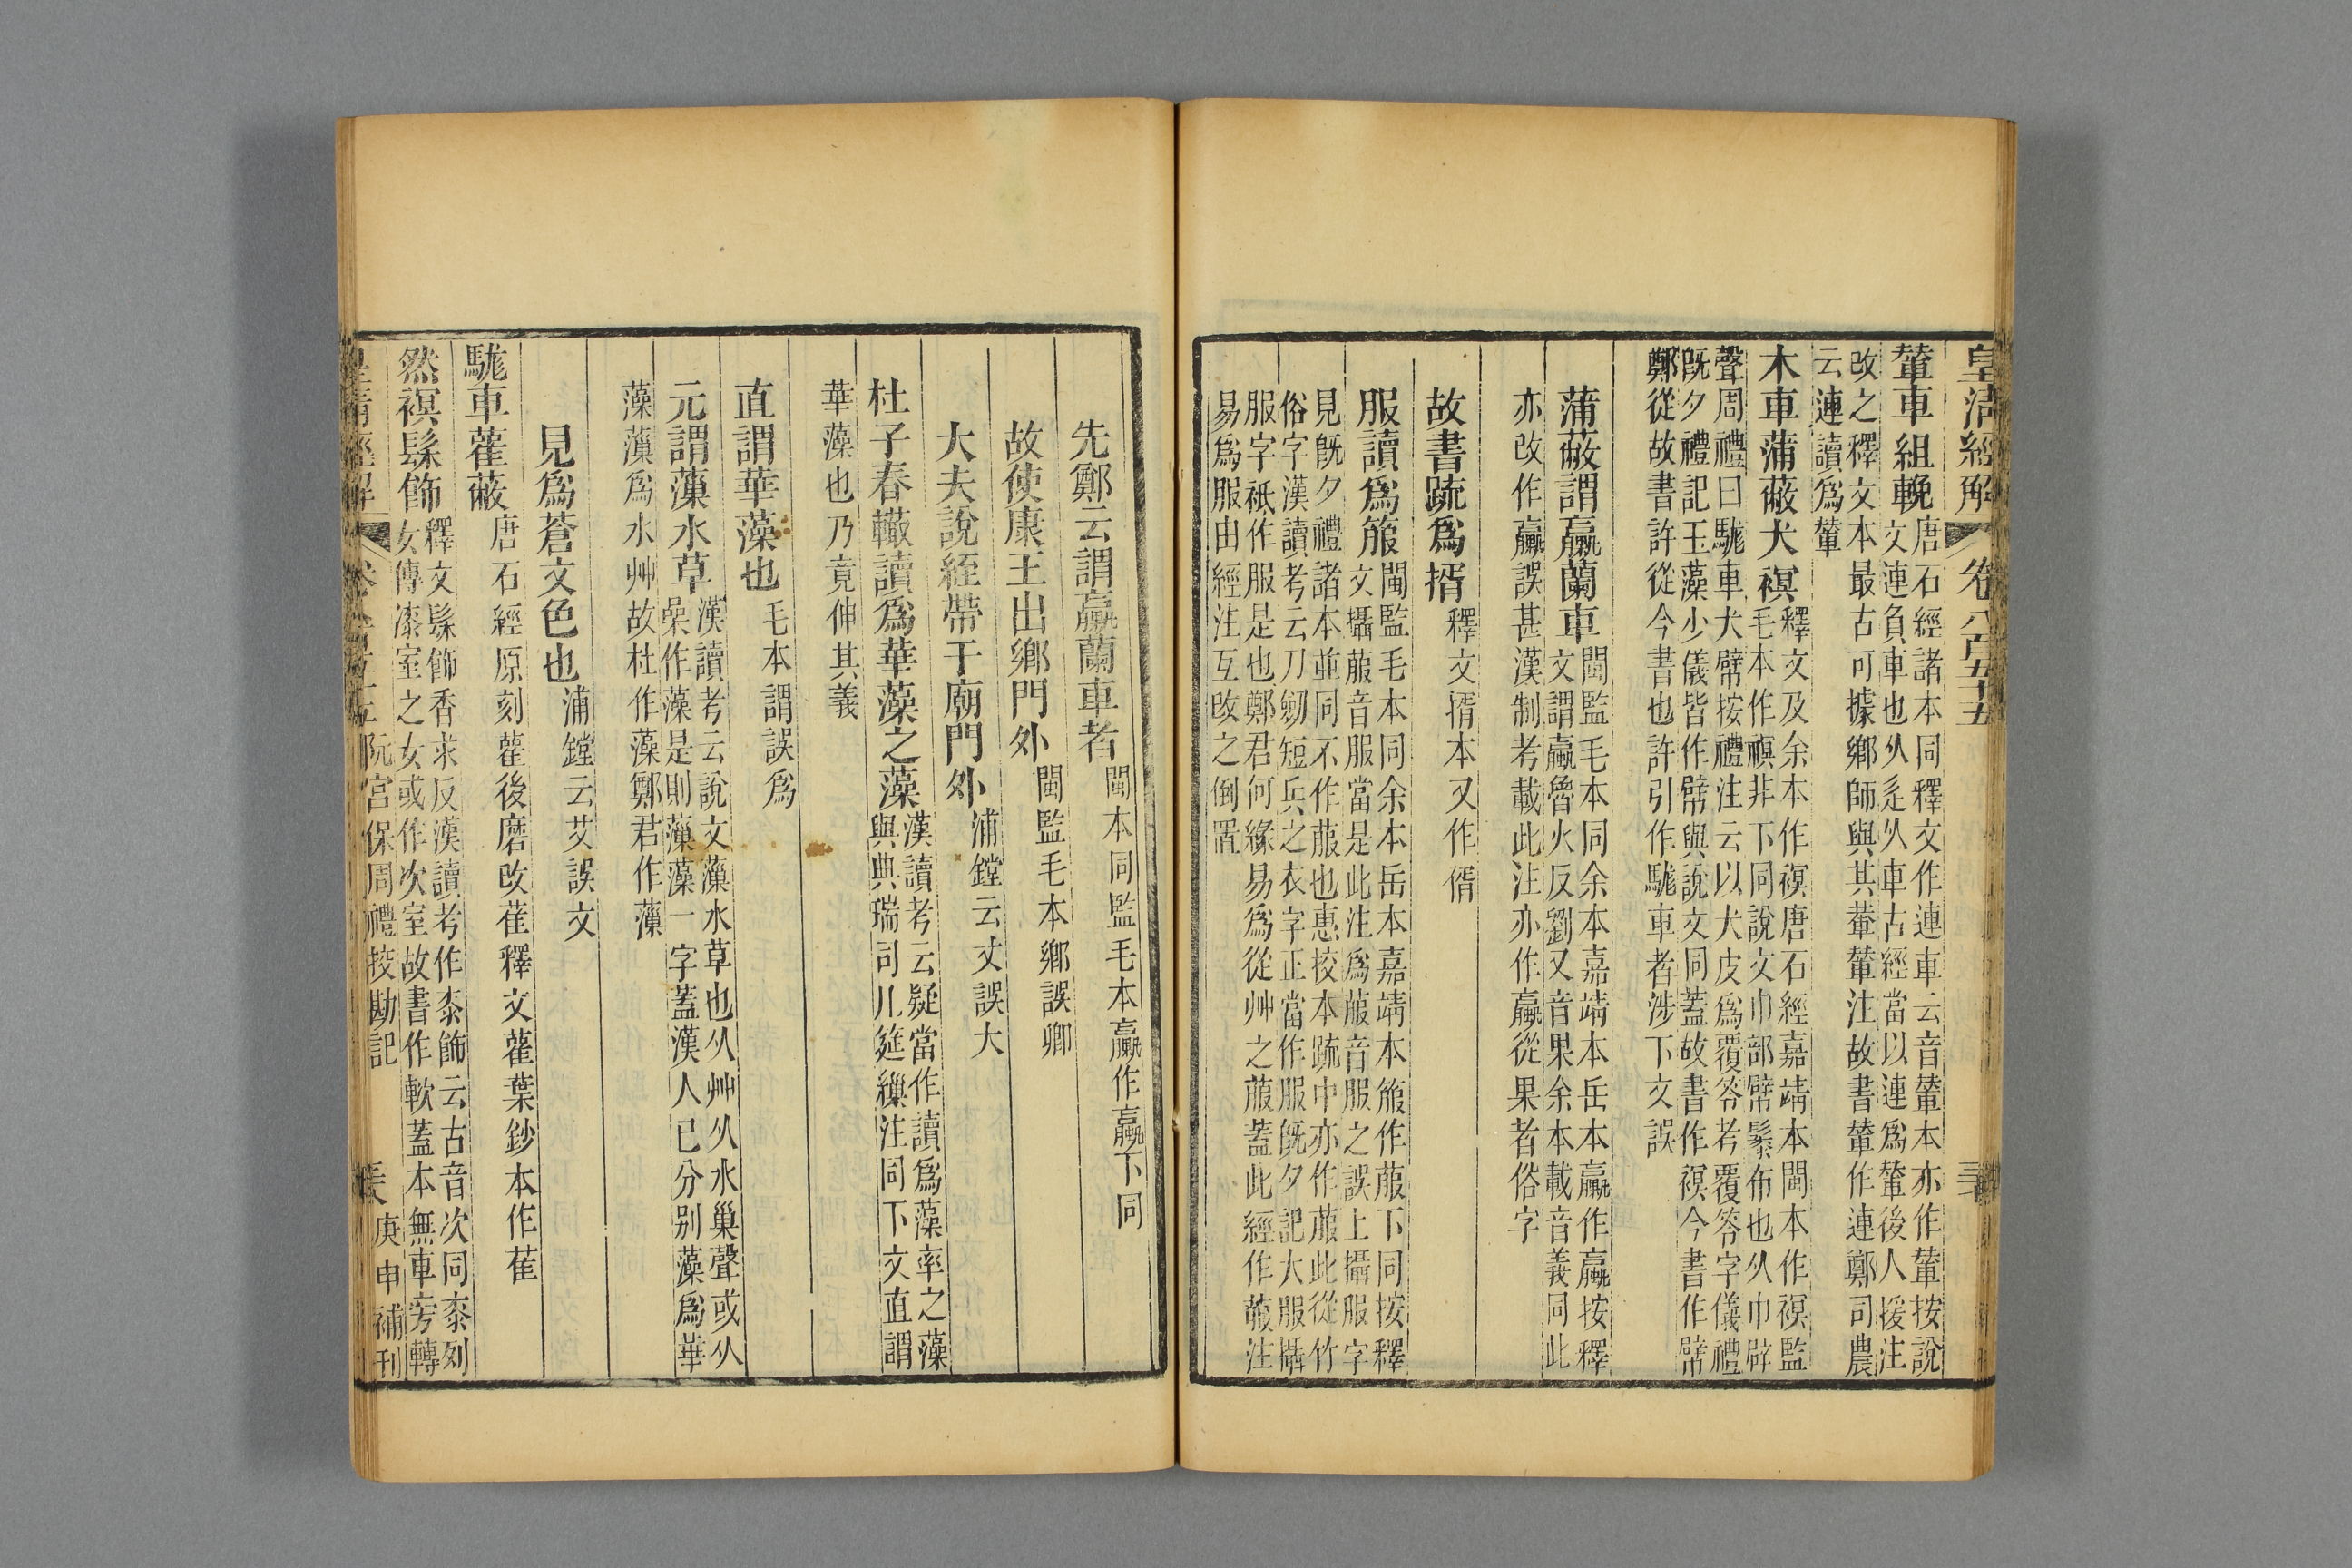 皇清經解 卷八百五十五
輦車組輓唐石經諸本同釋文作連車云音輦本亦作輦按說
文連負車也从辵从車古經當以連爲輦後人援注
改之釋文本最古可據鄉師與其輂輦注故書輦作連鄭司農
云連讀爲輦
木車蒲蔽犬𧜀釋文及余本作𧜀唐石經嘉靖本閩本作𧜀監
毛本作幎非下同說文巾部幦䰍布也从巾辟
聲周禮曰駹車犬幦按禮注云以犬皮爲覆笭考覆笭字儀禮
旣夕禮記玉藻少儀皆作幦與說文同蓋故書作𧜀今書作幦
鄭從故書許從今書也許引作駹車者涉下文誤
蒲蔽謂蠃蘭車閩監毛本同余本嘉靖本岳本蠃作贏按釋
文謂蠃魯火反劉又音果余本載音義同此
亦改作蠃誤甚漢制考載此注亦作贏從果者俗字
故書疏爲揟釋文揟本又作偦
服讀爲箙閩監毛本同余本岳本嘉靖本箙作菔下同按釋
文攝菔音服當是此注爲菔音服之誤上攝服字
見旣夕禮諸本並同不作菔也惠挍本疏中亦作菔此從竹
俗字漢讀考云刀劒短兵之衣字正當作服旣夕記犬服攝
服字祇作服是也鄭君何緣易爲從艸之菔蓋此經作菔注
易爲服由經注互改之倒置
先鄭云謂蠃蘭車者閩本同監毛本蠃作贏下同
故使康王出鄉門外閩監毛本鄉誤卿
大夫說絰帶于廟門外浦鏜云丈誤大
杜子春轍讀爲華藻之藻漢讀考云疑當作讀爲藻率之藻
與典瑞司几筵繅注同下文直謂
華藻也乃竟伸其義
直謂華藻也毛本謂誤爲
元謂薻水草漢讀考云說文薻水草也从艸从水巢聲或从
喿作藻是則薻藻一字蓋漢人已分别藻爲華
藻薻爲水艸故杜作藻鄭君作薻
見爲蒼文色也浦鏜云艾誤文
駹車雚蔽唐石經原刻雚後磨改萑釋文雚葉鈔本作萑
然𧜀髤飾釋文髤飾香求反漢讀考作桼飾云古音次同桼列
女傳漆室之女或作次室故書作軟蓋本無車旁轉
皇清經解 阮宮保周禮挍勘記 庚申補刊